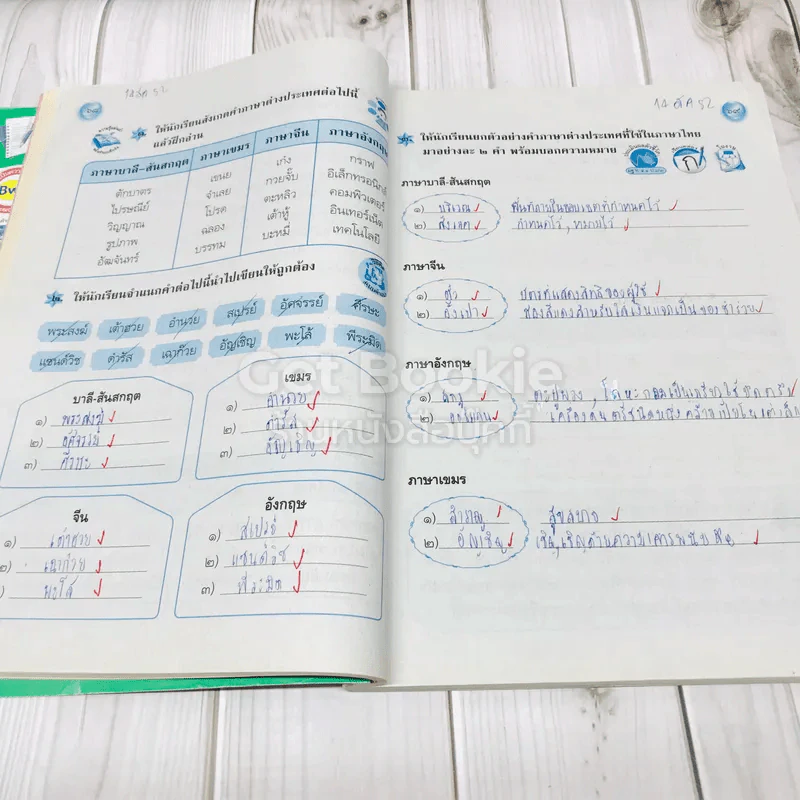 14 ส.ค 52
๑. ให้นักเรียนสังเกตคำภาษาต่างประเทศต่อไปนี้
แล้วฝึกอ่าน
ภาษาบาลี-สันสกฤต ภาษาเขมร ภาษาจีน ภาษาอังกฤษ
ตักบาตร เขนย เก๋ง กราฟ
ไปรษณีย์ จำเลย กวยจั๊บ อิเล็กทรอนิกส์
วิญญาณ โปรด ตะหลิว คอมพิวเตอร์
รูปภาพ ฉลอง เต้าหู้ อินเทอร์เน็ต
อัฒจันทร์ บรรทม บะหมี่ เทคโนโลยี
๒. ให้นักเรียนจำแนกคำต่อไปนี้นำไปเขียนให้ถูกต้อง
พระสงฆ์ เต้าฮวย อำนวย สเปรย์ อัศจรรย์ ศีรษะ
แซนด์วิช ดำรัส เฉาก๊วย อัญเชิญ พะโล้ พีระมิด
บาลี-สันสกฤต
๑) พระสงฆ์
๒) อัศจรรย์
๓) ศีรษะ
เขมร
๑) อำนวย
๒) ดำรัส
๓) อัญเชิญ
จีน
๑) เต้าฮวย
๒) เฉาก๊วย
พะโล้
อังกฤษ
๑) สเปรย์
๒) แซนด์วิช
๓) พีระมิด
14 ส.ค 52
๑. ให้นักเรียนยกตัวอย่างคำภาษาต่างประเทศที่ใช้ในภาษาไทย
มาอย่างละ ๒ คำ พร้อมบอกความหมาย
ภาษาบาลี-สันสกฤต
๑) บริเวณ พื้นที่ภายในขอบเขตที่กำหนดไว้
๒) สังเกต กำหนดไว้, หมายไว้
ภาษาจีน
๑) ตั๋ว บัตรที่แสดงสิทธิของผู้ใช้
๒) อั่งเปา ซองสีแดงสำหรับใส่เงินแจกเป็นของชำร่วย
ภาษาอังกฤษ
๑)
๒)
ภาษาเขมร
๑) สำราญ สุขสบาย
๒) อัญเชิญ เชิญ, เชิญด้วยความเคารพนับถือ
Get Bookie
ร้านหนังสือบุ๊คกี้